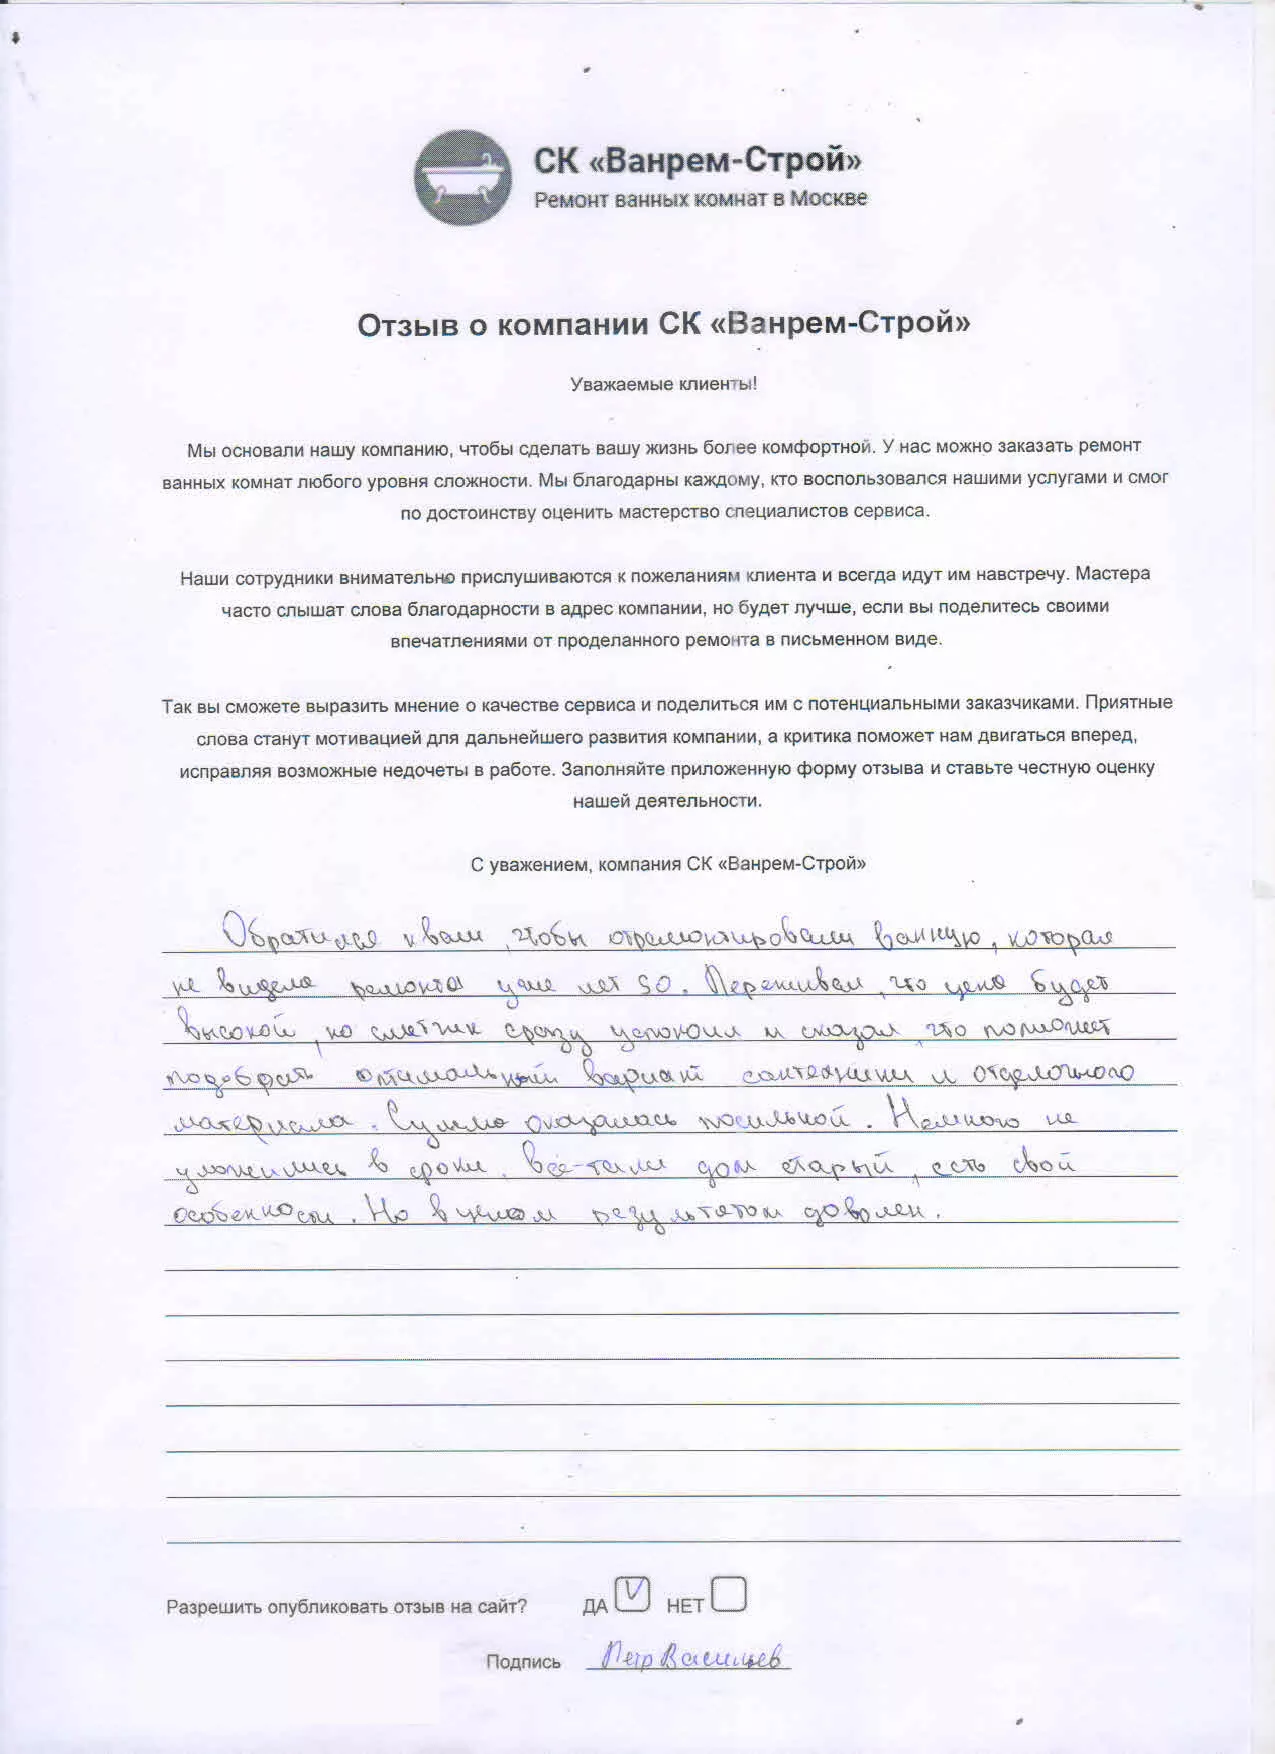 СК «Ванрем-Строй»
Ремонт ванных комнат в Москве
Отзыв о компании СК «Ванрем-Строй»
Уважаемые клиенты!
Мы основали нашу компанию, чтобы сделать вашу жизнь более комфортной. У нас можно заказать ремонт
ванных комнат любого уровня сложности. Мы благодарны каждому, кто воспользовался нашими услугами и смог
по достоинству оценить мастерство специалистов сервиса.
Наши сотрудники внимательно прислушиваются к пожеланиям клиента и всегда идут им навстречу. Мастера
часто слышат слова благодарности в адрес компании, но будет лучше, если вы поделитесь своими
впечатлениями от проделанного ремонта в письменном виде.
Так вы сможете выразить мнение о качестве сервиса и поделиться им с потенциальными заказчиками. Приятные
слова станут мотивацией для дальнейшего развития компании, а критика поможет нам двигаться вперед,
исправляя возможные недочеты в работе. Заполняйте приложенную форму отзыва и ставьте честную оценку
нашей деятельности.
С уважением, компания СК «Ванрем-Строй»
Обратился к вам, чтобы отремонтировали ванную, которая
не видела ремонта уже лет 30. Переживал, что цена будет
высокой, но сметчик сразу успокоил и сказал, что поможет
подобрать оптимальный вариант сантехники и отделочного
материала. Сумма оказалась посильной. Немного не
уложились в сроки, всё-таки дом старый, есть свои
особенности. Но в целом результатом доволен.
Разрешить опубликовать отзыв на сайт? ДА НЕТ
Подпись Петр Васильев